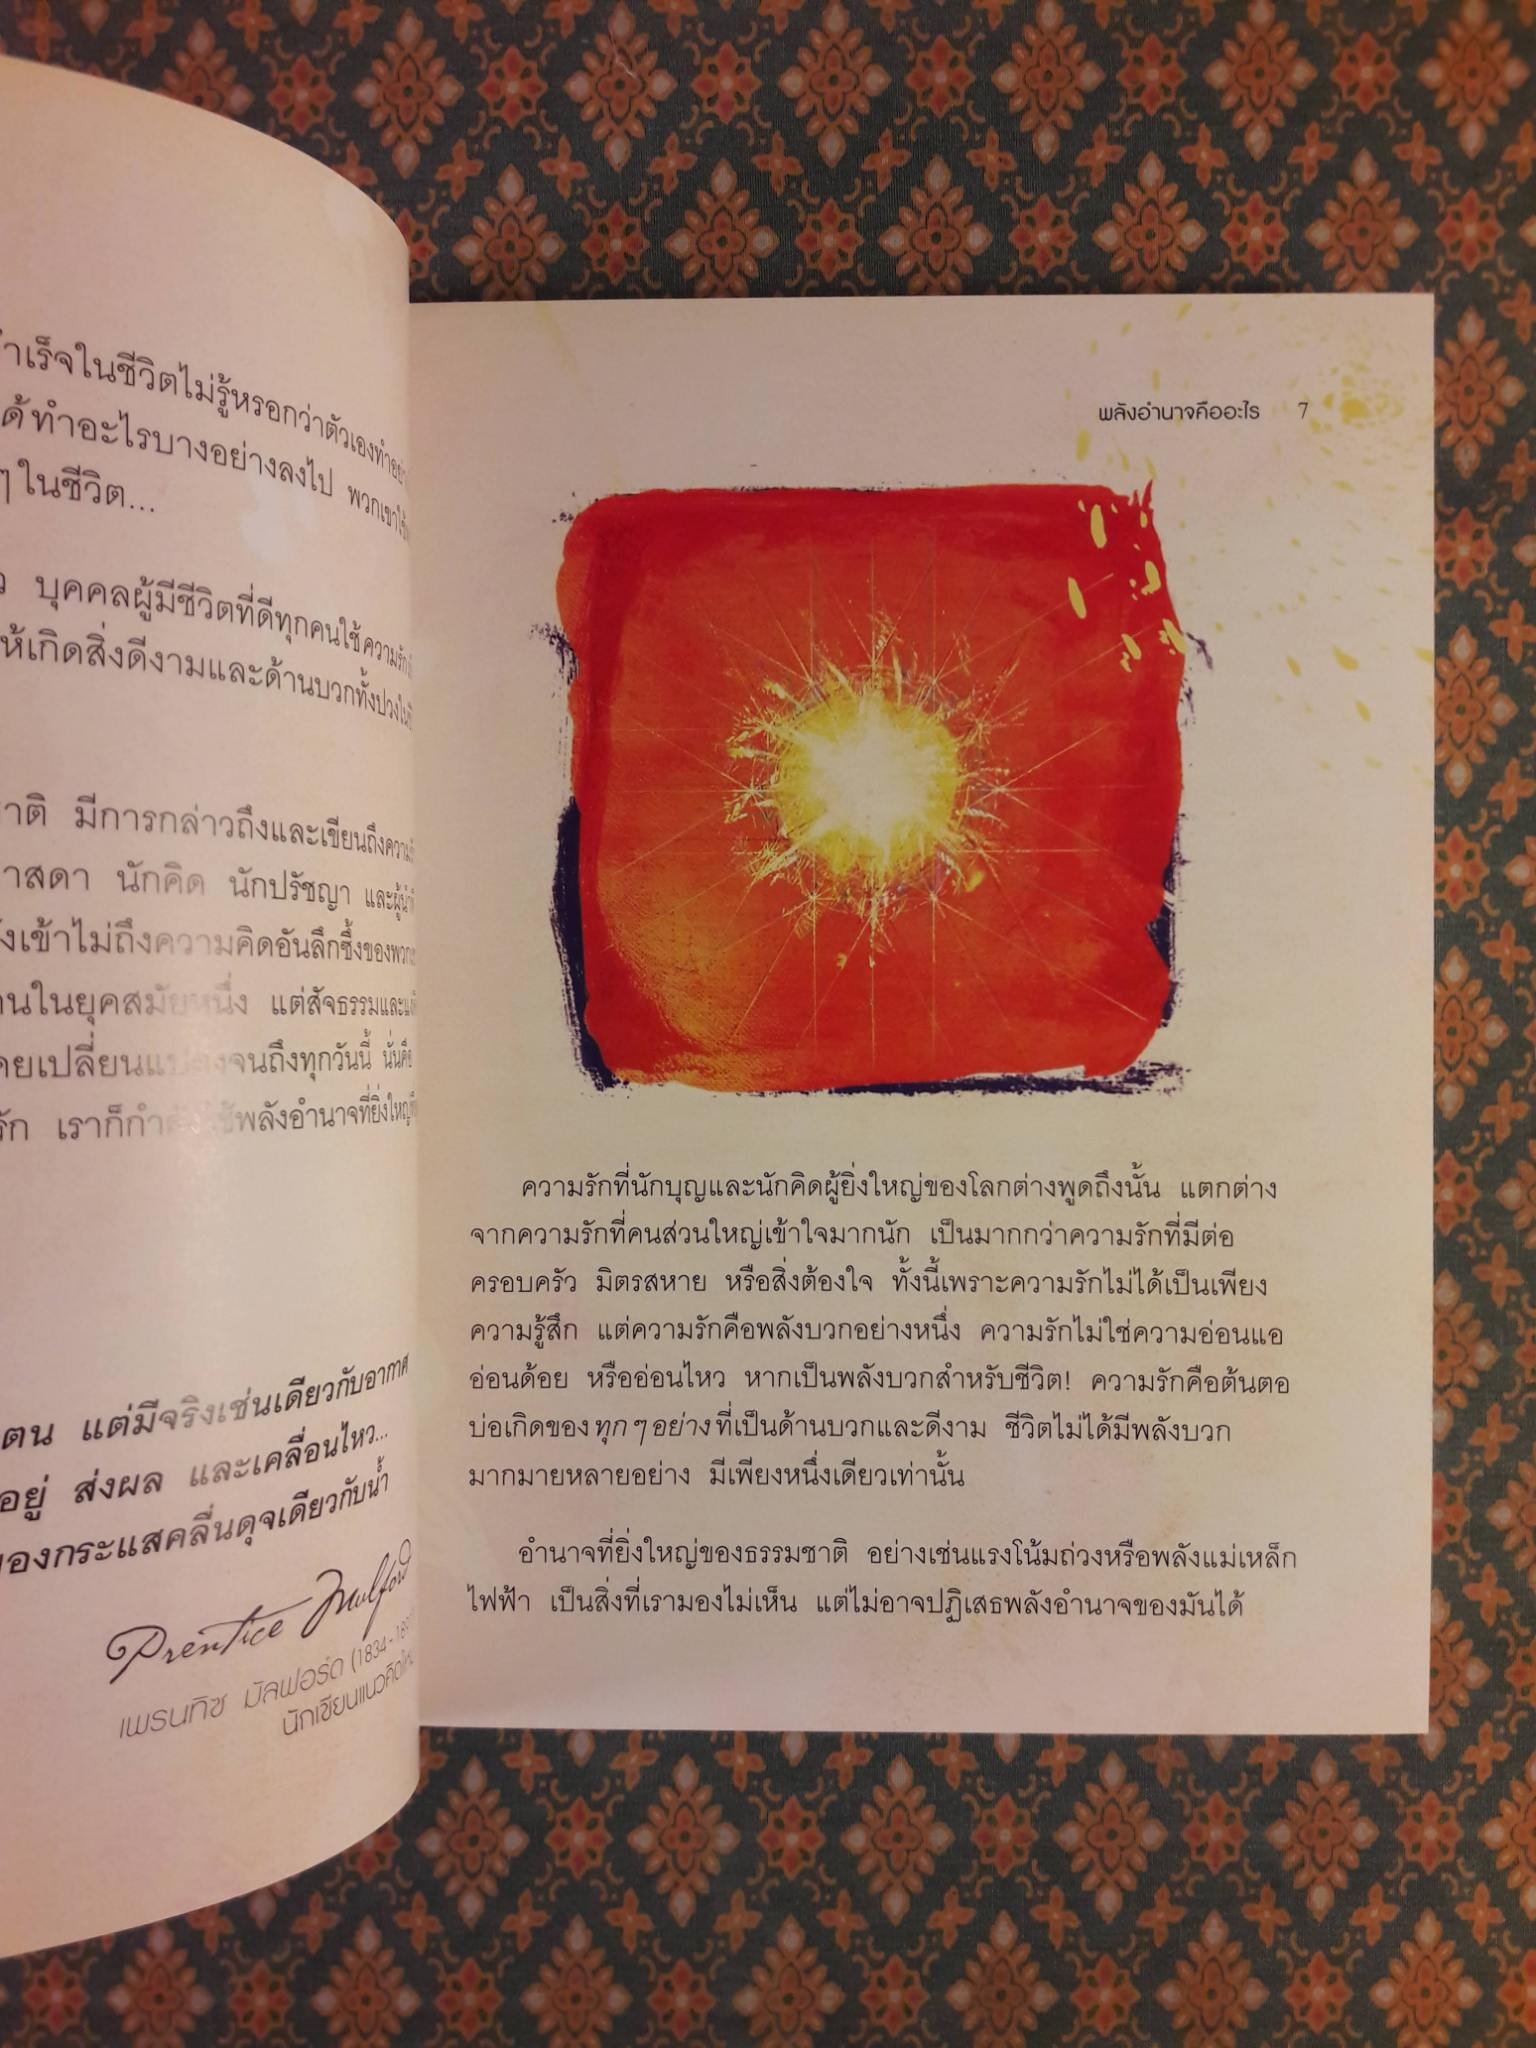 สำเร็จในชีวิตไม่รู้หรอกว่าตัวเองทำอย่าง
ได้ทำอะไรบางอย่างลงไป พวกเขาใช้
ๆ ในชีวิต...
บุคคลผู้มีชีวิตที่ดีทุกคนใช้ความรัก
ให้เกิดสิ่งดีงามและด้านบวกทั้งปวงใน
ชาติ มีการกล่าวถึงและเขียนถึงความ
ศาสดา นักคิด นักปรัชญา และผู้นำ
ยังเข้าไม่ถึงความคิดอันลึกซึ้งของพวก
ในยุคสมัยหนึ่ง แต่สัจธรรมและ
เคยเปลี่ยนแปลงจนถึงทุกวันนี้ นั่นคือ
รัก เราก็กำลังใช้พลังอำนาจที่ยิ่งใหญ่
ตน แต่มีจริงเช่นเดียวกับอากาศ
อยู่ ส่งผล และเคลื่อนไหว...
ของกระแสคลื่นดุจเดียวกับน้ำ
Prentice Mulford
เพรนทิซ มัลฟอร์ด (1834-189
นักเขียนแนวคิดใหม่
พลังอำนาจคืออะไร 7
ความรักที่นักบุญและนักคิดผู้ยิ่งใหญ่ของโลกต่างพูดถึงนั้น แตกต่าง
จากความรักที่คนส่วนใหญ่เข้าใจมากนัก เป็นมากกว่าความรักที่มีต่อ
ครอบครัว มิตรสหาย หรือสิ่งต้องใจ ทั้งนี้เพราะความรักไม่ได้เป็นเพียง
ความรู้สึก แต่ความรักคือพลังบวกอย่างหนึ่ง ความรักไม่ใช่ความอ่อนแอ
อ่อนด้อย หรืออ่อนไหว หากเป็นพลังบวกสำหรับชีวิต! ความรักคือต้นตอ
บ่อเกิดของทุกๆ อย่างที่เป็นด้านบวกและดีงาม ชีวิตไม่ได้มีพลังบวก
มากมายหลายอย่าง มีเพียงหนึ่งเดียวเท่านั้น
อำนาจที่ยิ่งใหญ่ของธรรมชาติ อย่างเช่นแรงโน้มถ่วงหรือพลังแม่เหล็ก
ไฟฟ้า เป็นสิ่งที่เรามองไม่เห็น แต่ไม่อาจปฏิเสธพลังอำนาจของมันได้